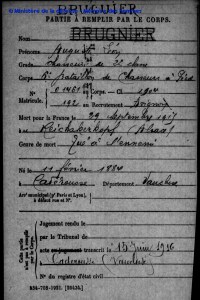 BRUGNIER
PARTIE À REMPLIR PAR LE CORPS.
Nom BRUGNIER
Prénoms Auguste
Grade Chasseur de 2e classe
Corps 5e Bataillon de Chasseurs à Pied
N° Matricule.
au Corps. — Cl. 1904
192 au Recrutement Avignon
Mort pour la France le 29 Septembre 1915
à Reichakerkopf (Alsace)
Genre de mort Tué à l'ennemi
Né le 11 février 1884
à Caderousse Département Vaucluse
Arr' municipal (p' Paris et Lyon),
à défaut rue et N°.
Jugement rendu le
par le Tribunal de
acte ou jugement transcrit le 15 Juin 1916
à Caderousse (Vaucluse)
N° du registre d'état civil